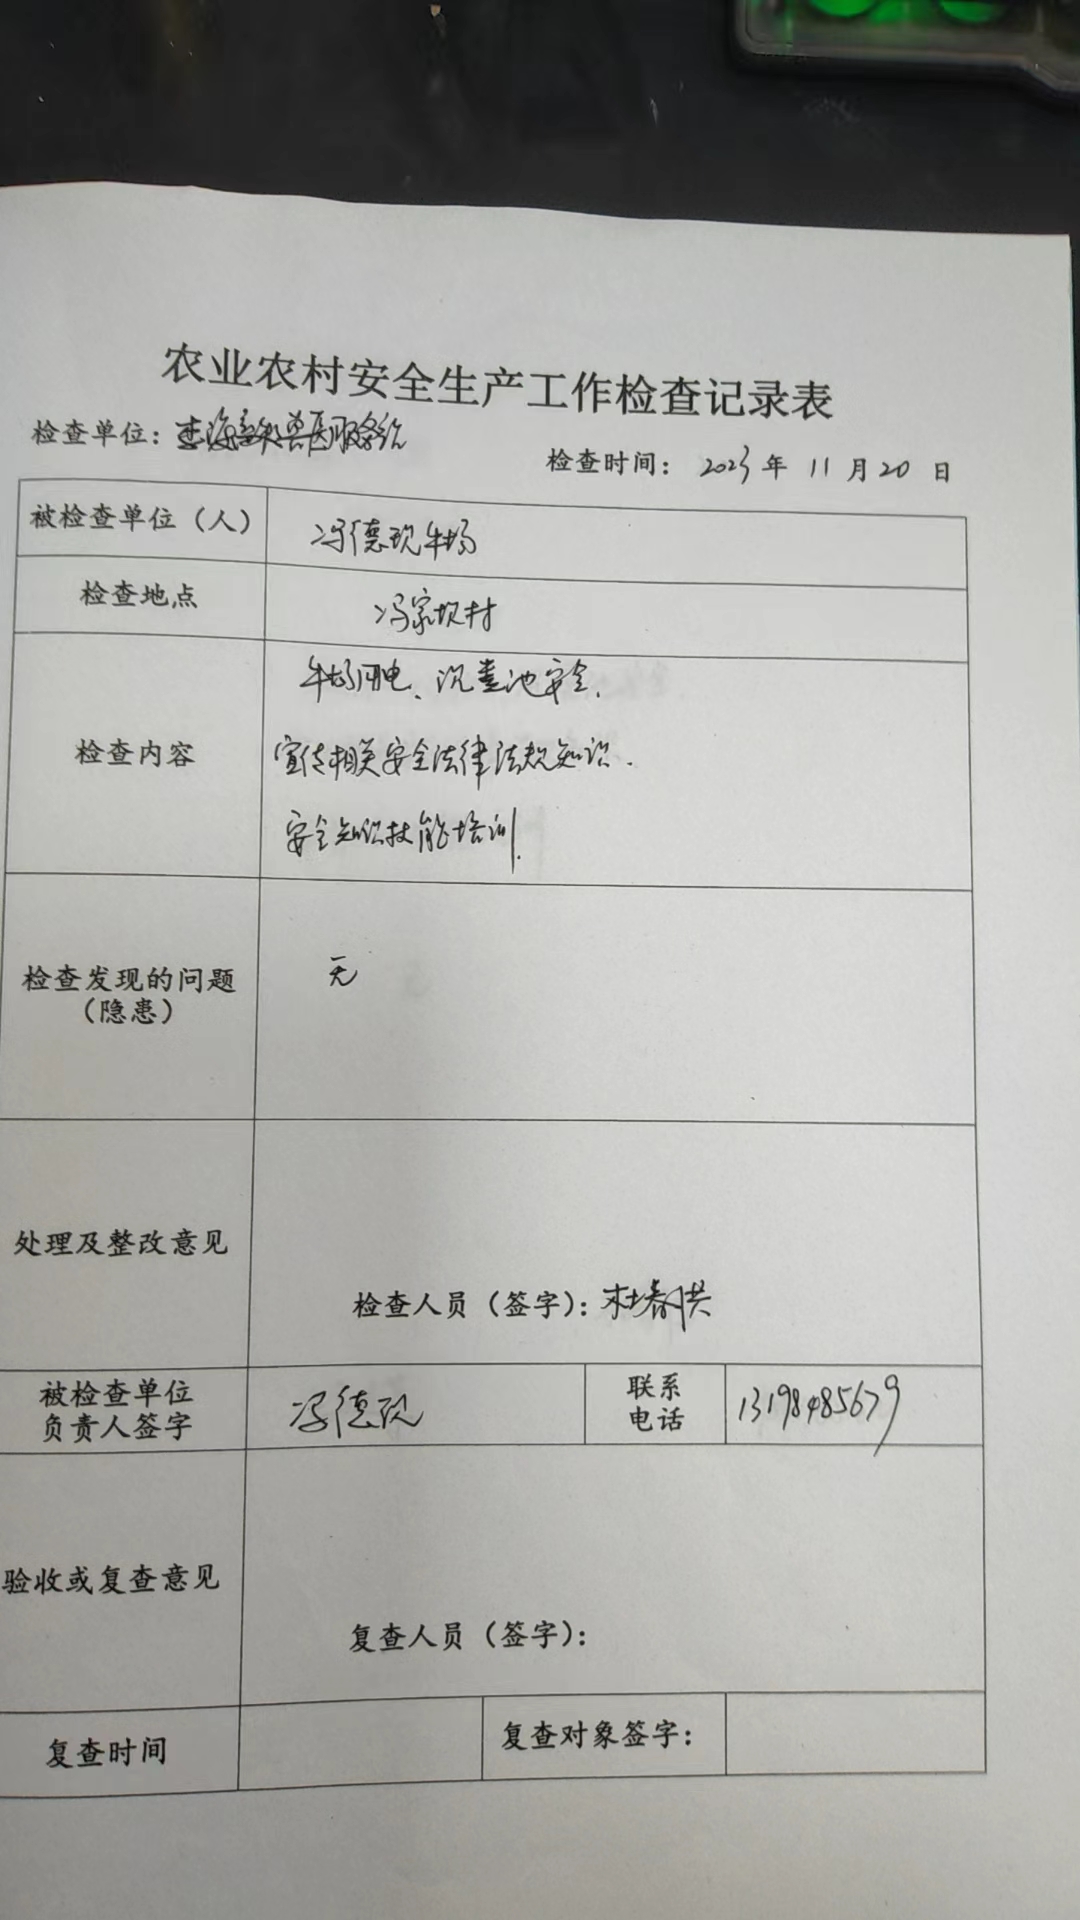 农业农村安全生产工作检查记录表
检查单位：海畜牧兽医服务站
检查时间： 2023 年 11 月 20 日
被检查单位（人） 冯德现牛场
检查地点 冯家坝村
牛场用电、沉粪池安全、
检查内容 宣传相关安全法律法规知识.
安全知识技能培训.
检查发现的问题 无
（隐患）
处理及整改意见
检查人员（签字）：杜春洪
被检查单位 冯德现 联系 13198485679
负责人签字 电话
验收或复查意见
复查人员（签字）：
复查时间 复查对象签字：